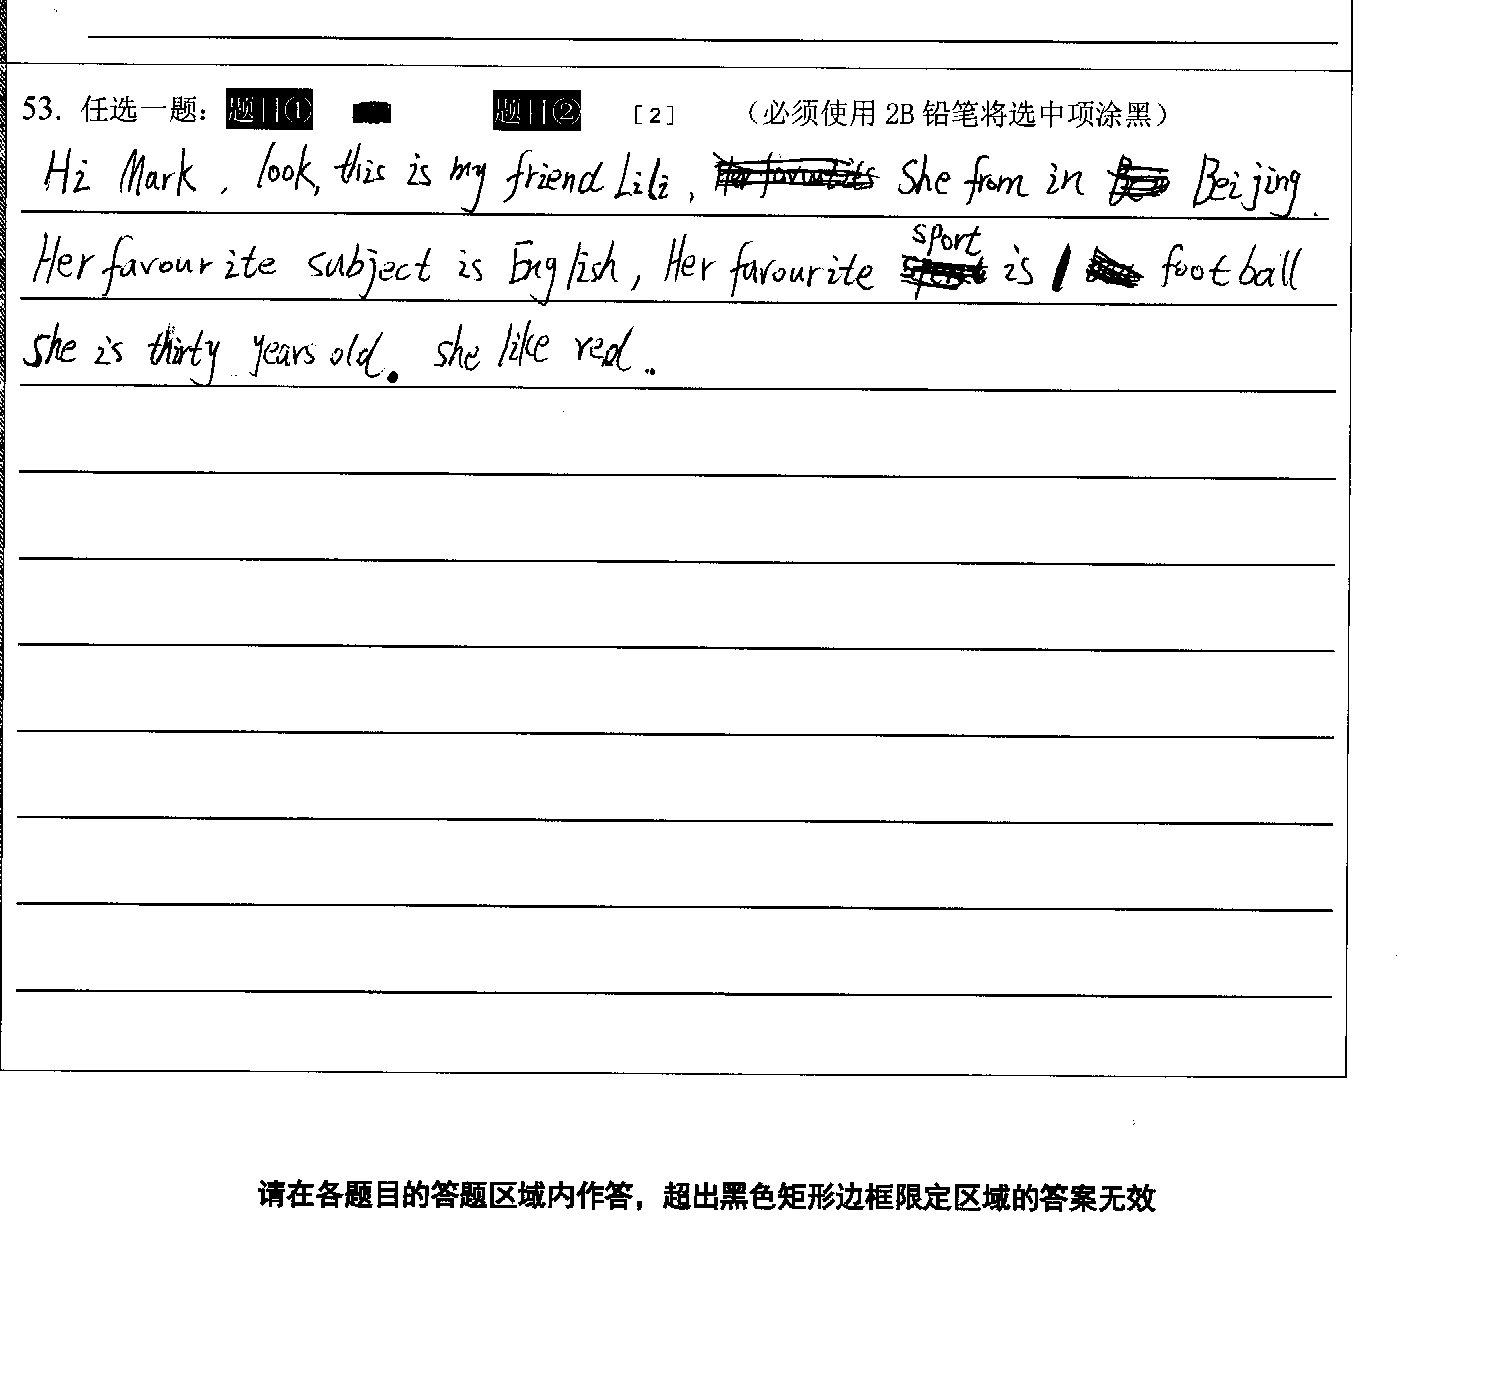 53. 任选一题： 题目① 题目② [2] （必须使用 2B 铅笔将选中项涂黑）
Hi Mark, look, this is my friend Lili, She from in Beijing.
Her favourite subject is English, Her favourite sport is football
she is thirty years old. she like red.
请在各题目的答题区域内作答，超出黑色矩形边框限定区域的答案无效